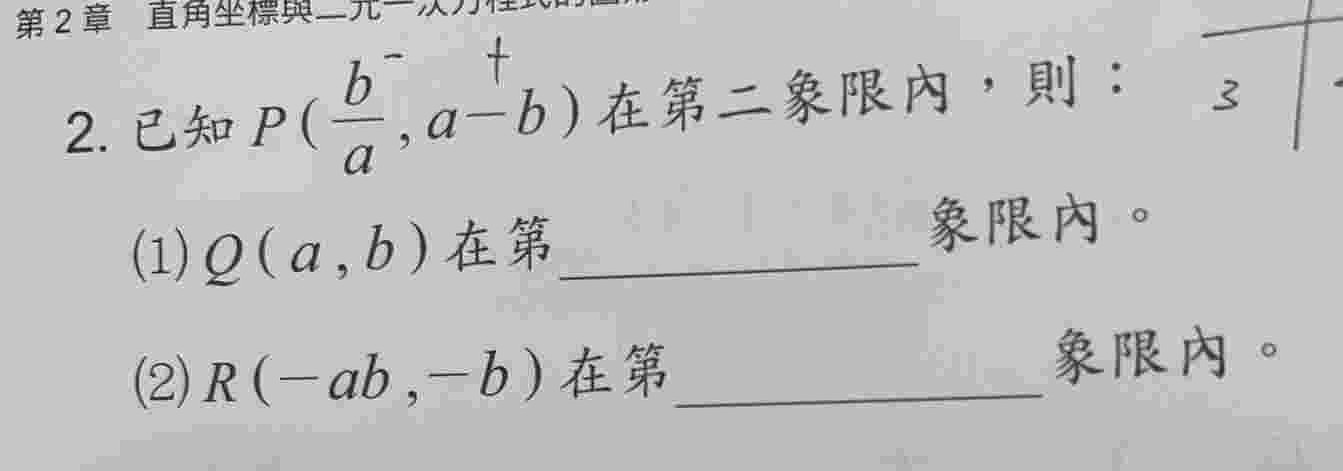 第 2 章 直角坐標與二元一次方程式的圖
2. 已知 P(b/a, a-b) 在第二象限內，則：
- +
3
(1) Q(a, b) 在第______象限內。
(2) R(-ab, -b) 在第______象限內。